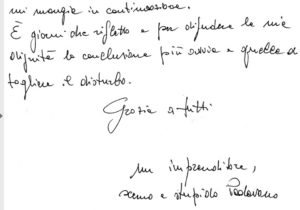 mi mangia in continuazione.
È giorni che rifletto e per difendere la mia
dignità la conclusione più ovvia è quella di
togliere il disturbo.
Grazie a tutti
un imprenditore,
scemo e stupido Padovano